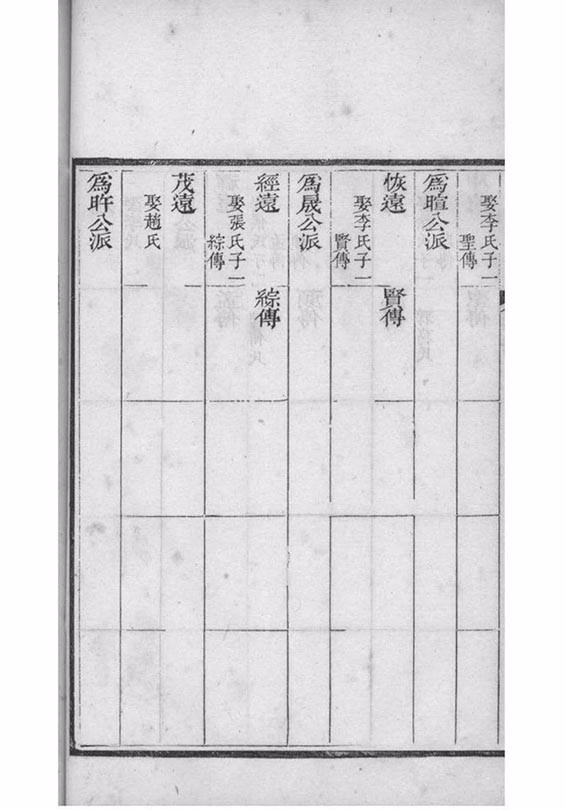 娶李氏子一
聖傳
爲暄公派
恢遠
賢傳
娶李氏子一
賢傳
爲晟公派
經遠
綜傳
娶張氏子一
綜傳
茂遠
娶趙氏
爲旿公派